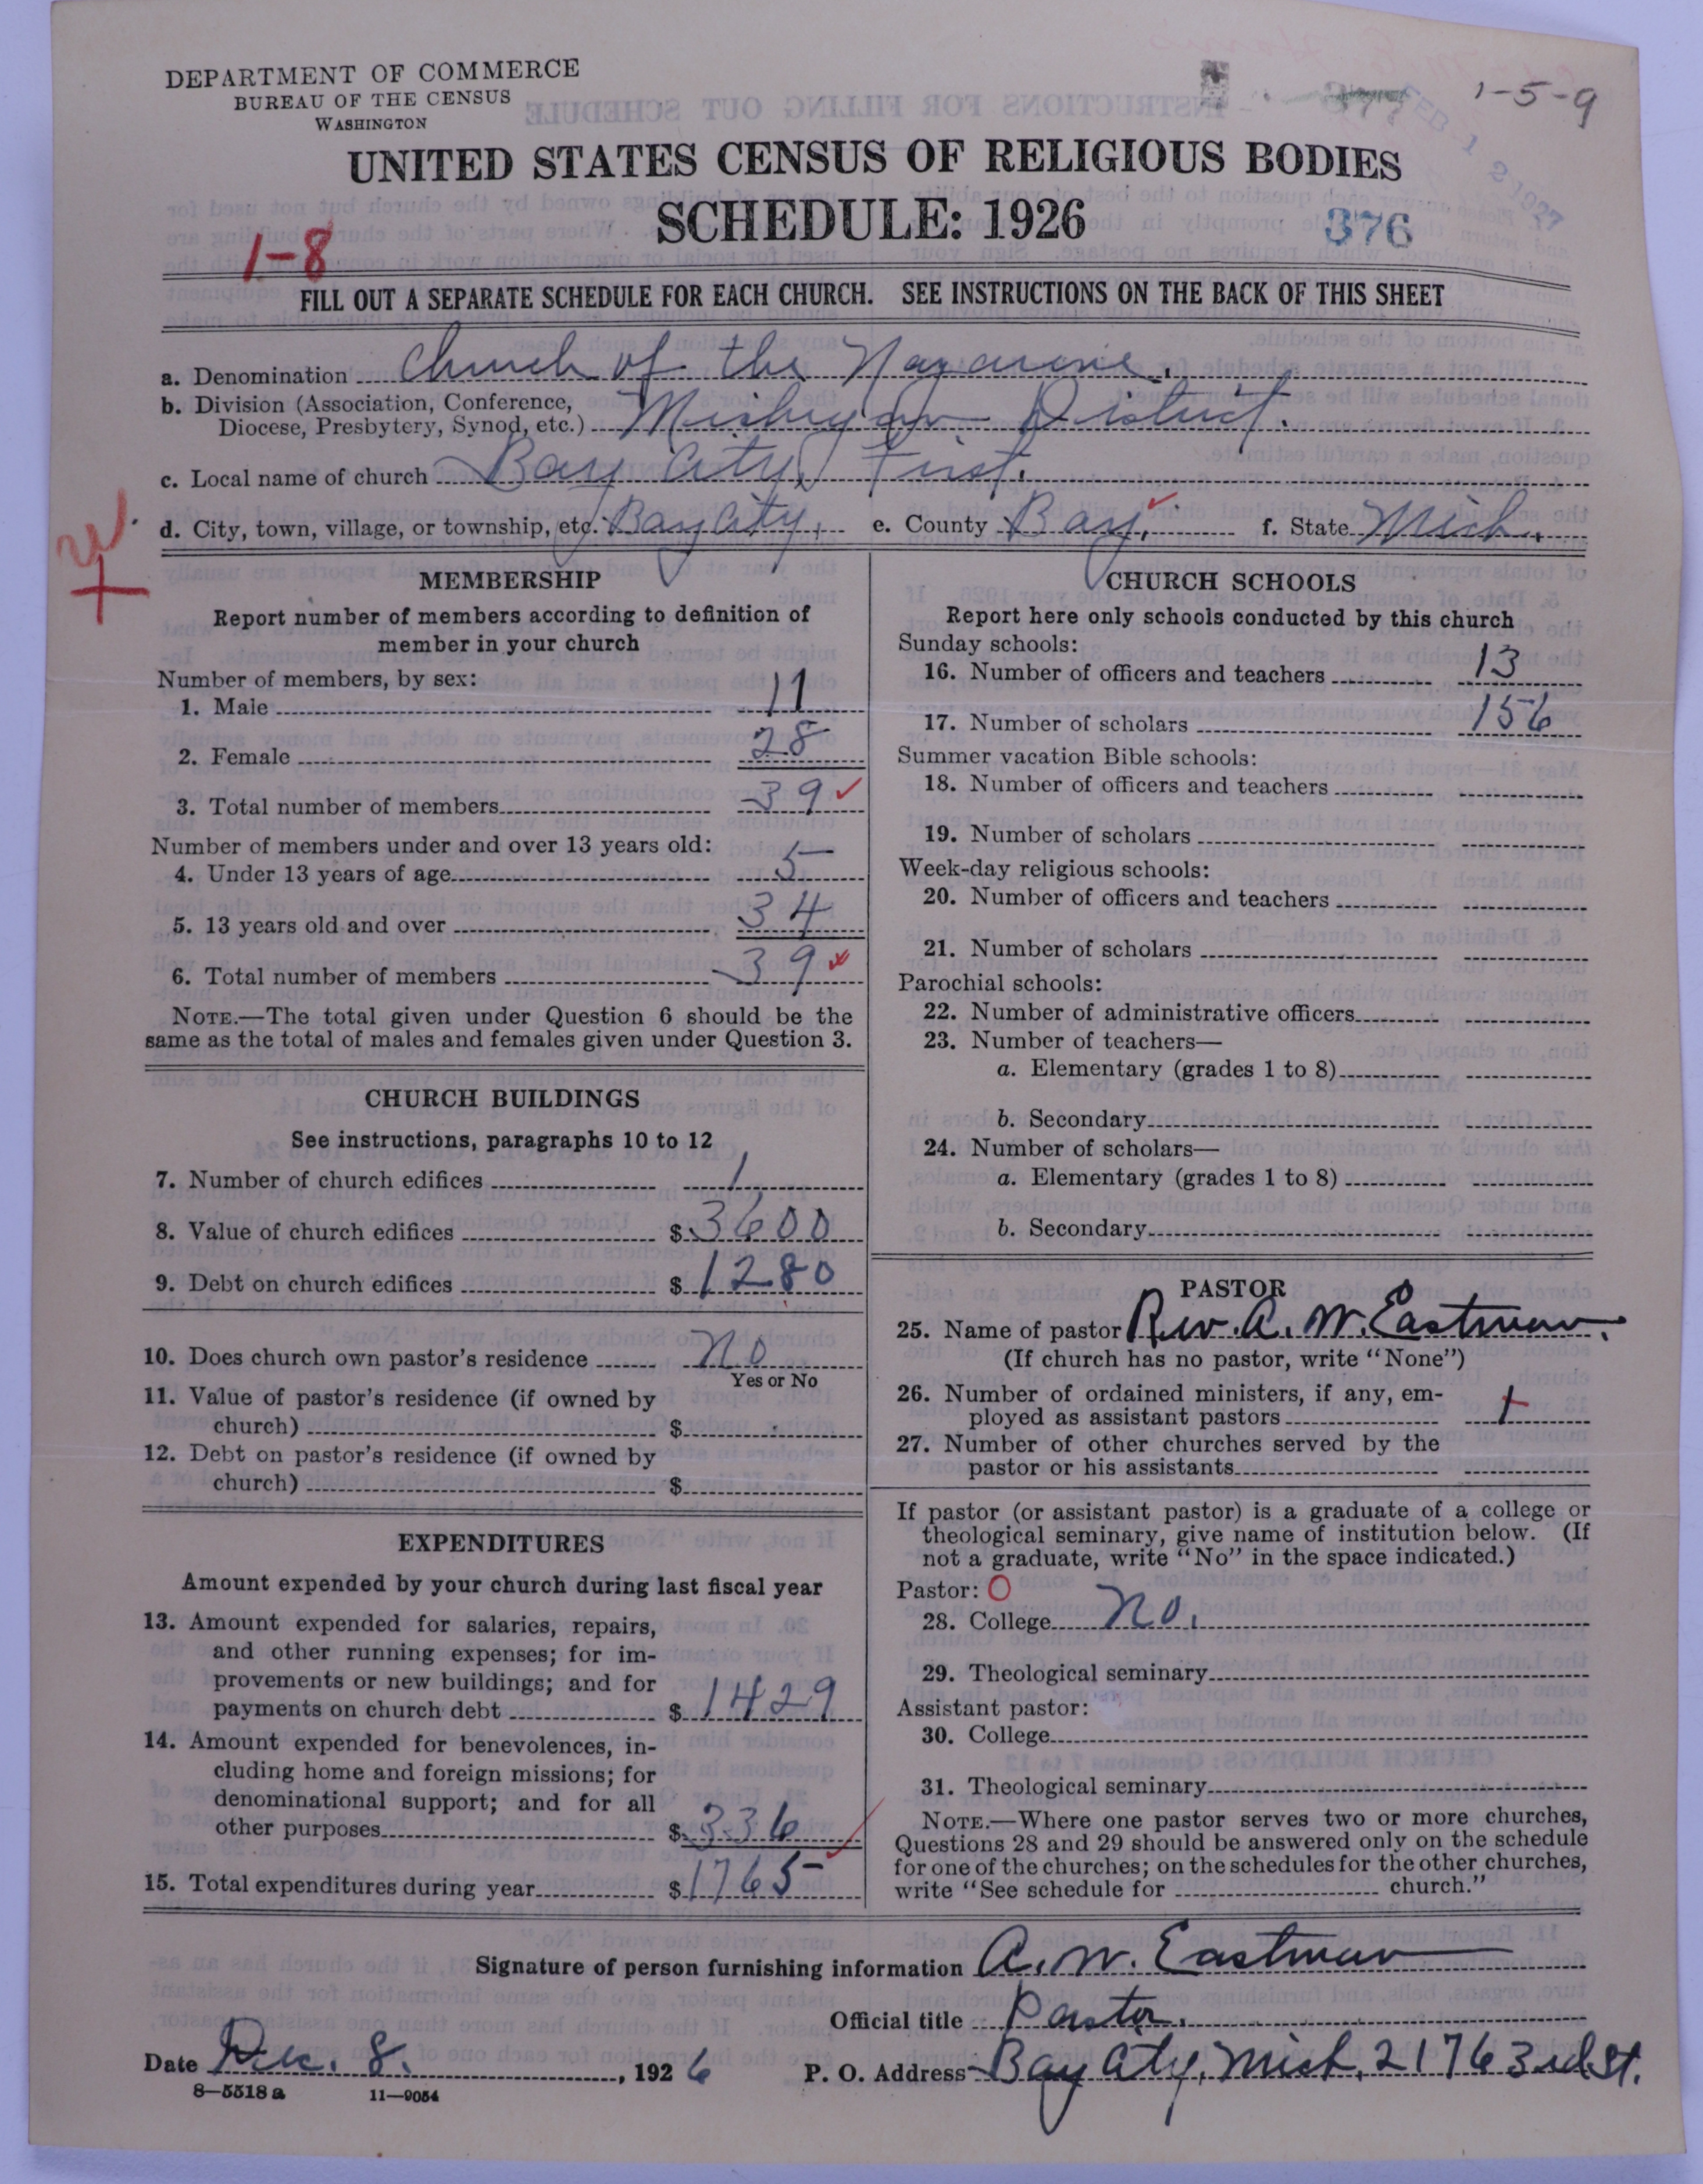 DEPARTMENT OF COMMERCE
BUREAU OF THE CENSUS
WASHINGTON
1-5-9
FEB 12 1927
UNITED STATES CENSUS OF RELIGIOUS BODIES
SCHEDULE: 1926
376
1-8
FILL OUT A SEPARATE SCHEDULE FOR EACH CHURCH. SEE INSTRUCTIONS ON THE BACK OF THIS SHEET
a. Denomination Church of the Nazarene.
b. Division (Association, Conference,
Diocese, Presbytery, Synod, etc.) Michigan District.
c. Local name of church Bay City, First.
d. City, town, village, or township, etc. Bay City, e. County Bay, f. State Mich.
MEMBERSHIP
Report number of members according to definition of
member in your church
Number of members, by sex:
1. Male 11
2. Female 28
3. Total number of members 39
Number of members under and over 13 years old:
4. Under 13 years of age 5
5. 13 years old and over 34
6. Total number of members 39
NOTE.—The total given under Question 6 should be the
same as the total of males and females given under Question 3.
CHURCH BUILDINGS
See instructions, paragraphs 10 to 12
7. Number of church edifices 1
8. Value of church edifices $ 3600
9. Debt on church edifices $ 1280
10. Does church own pastor's residence No
Yes or No
11. Value of pastor's residence (if owned by
church) $
12. Debt on pastor's residence (if owned by
church) $
EXPENDITURES
Amount expended by your church during last fiscal year
13. Amount expended for salaries, repairs,
and other running expenses; for im-
provements or new buildings; and for
payments on church debt $ 1429
14. Amount expended for benevolences, in-
cluding home and foreign missions; for
denominational support; and for all
other purposes $ 336
15. Total expenditures during year $ 1765
CHURCH SCHOOLS
Report here only schools conducted by this church
Sunday schools:
16. Number of officers and teachers 13
17. Number of scholars 156
Summer vacation Bible schools:
18. Number of officers and teachers
19. Number of scholars
Week-day religious schools:
20. Number of officers and teachers
21. Number of scholars
Parochial schools:
22. Number of administrative officers
23. Number of teachers—
a. Elementary (grades 1 to 8)
b. Secondary
24. Number of scholars—
a. Elementary (grades 1 to 8)
b. Secondary
PASTOR
25. Name of pastor Rev. A. W. Eastman.
(If church has no pastor, write "None")
26. Number of ordained ministers, if any, em-
ployed as assistant pastors
27. Number of other churches served by the
pastor or his assistants
If pastor (or assistant pastor) is a graduate of a college or
theological seminary, give name of institution below. (If
not a graduate, write "No" in the space indicated.)
Pastor: O
28. College No.
29. Theological seminary
Assistant pastor:
30. College
31. Theological seminary
NOTE.—Where one pastor serves two or more churches,
Questions 28 and 29 should be answered only on the schedule
for one of the churches; on the schedules for the other churches,
write "See schedule for church."
Signature of person furnishing information A. W. Eastman
Official title Pastor.
Date Dec. 8. , 1926 P. O. Address Bay City, Mich, 2176 3rd St.
8-5518 a 11-9054